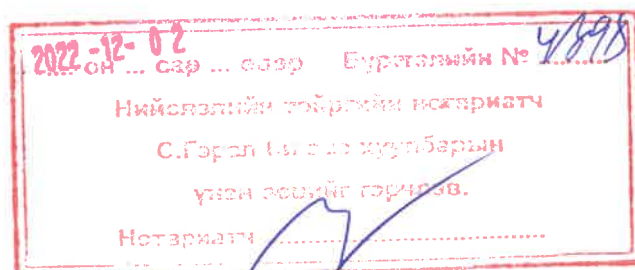 2022-12-02
... он ... сар ... өдөр Бүртгэлийн № 4/898
Нийслэлийн тойргийн нотариатч
С.Гэрэл би энэ хуулбарын
үнэн зөвийг гэрчлэв.
Нотариатч ..............................